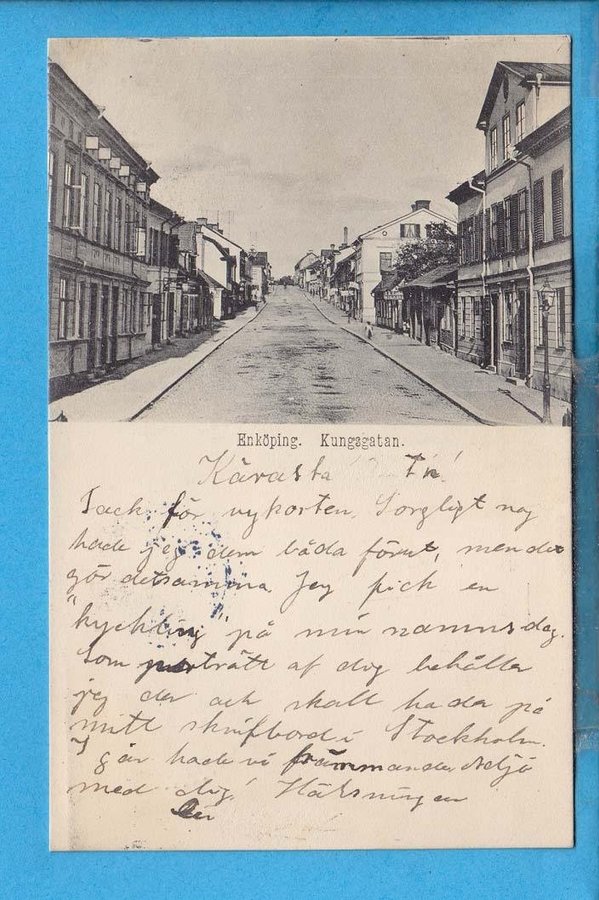 Enköping. Kungsgatan.
Kärasta
Tack för vykorten. Sorgligt nog
hade jag dem båda förut, men det
gör detsamma. Jag fick en
"kyckling" på min namnsdag.
Som porträtt af dig behåller
jag den och skall ha den på
mitt skrifbord i Stockholm.
I går hade vi främmande. Adjö
med dig! Hälsningar